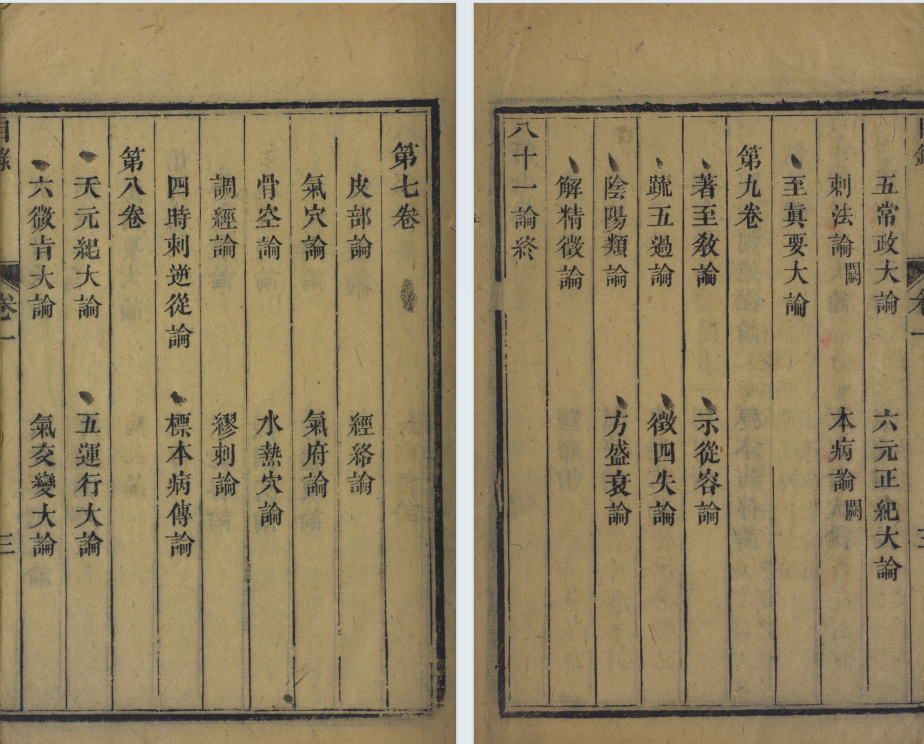 第七卷
皮部論　經絡論
氣穴論　氣府論
骨空論　水熱穴論
調經論　繆刺論
四時刺逆從論　標本病傳論
第八卷
天元紀大論　五運行大論
六微㫖大論　氣交變大論
目錄　卷一　三
五常政大論　六元正紀大論
刺法論闕　本病論闕
至眞要大論
第九卷
著至敎論　示從容論
䟽五過論　徵四失論
陰陽類論　方盛衰論
解精徵論
八十一論終